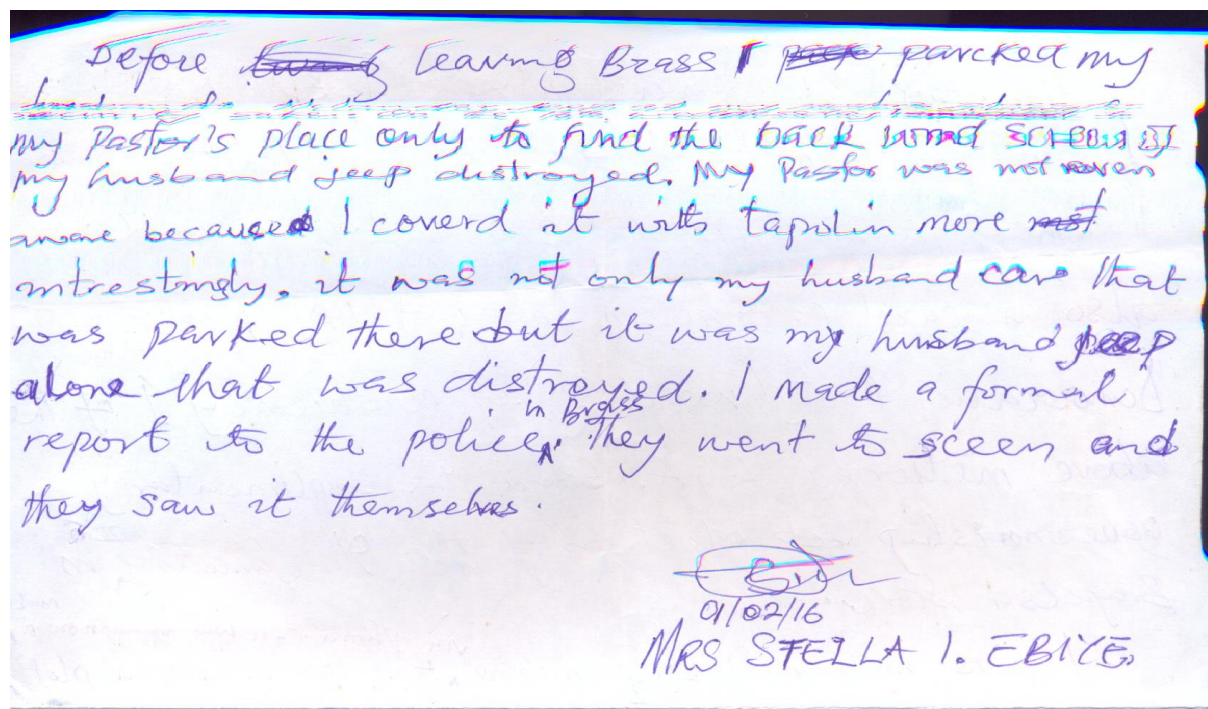 Before leaving Brass I parcked my
my Pastor's place only to find the back wind screen of
my husband jeep distroyed. My Pastor was not even
aware because I coverd it with tapolin more
intrestingly, it was not only my husband car that
was parked there but it was my husband jeep
alone that was distroyed. I made a formal
report to the police in Brass. They went to sceen and
they saw it themselves.
01/02/16
MRS STELLA I. EBIYE